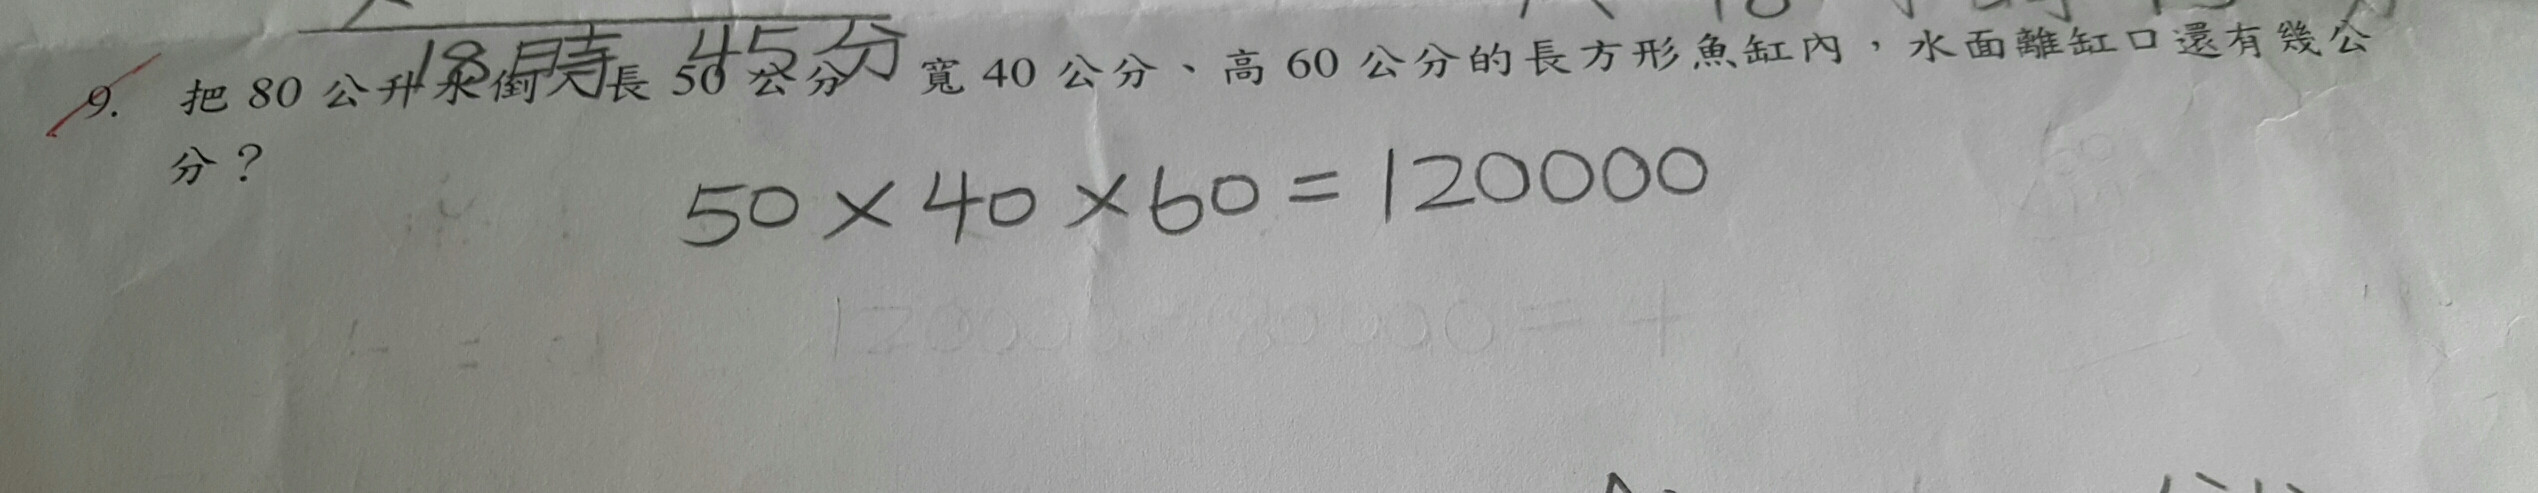 18時 45分
9. 把 80 公升水倒入長 50 公分、寬 40 公分、高 60 公分的長方形魚缸內，水面離缸口還有幾公
分？
50 × 40 × 60 = 120000
120000 - 80000 = 4